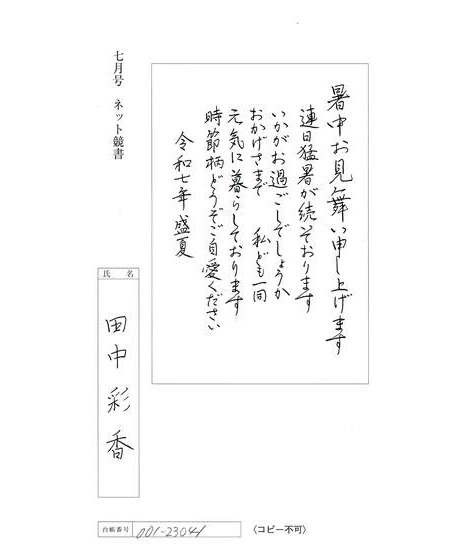 七月号 ネット競書
暑中お見舞い申し上げます
連日猛暑が続いております
いかがお過ごしでしょうか
おかげさまで 私ども一同
元気に暮らしております
時節柄どうぞご自愛ください
令和七年 盛夏
氏名
田中彩香
台帳番号 001-23041
〈コピー不可〉